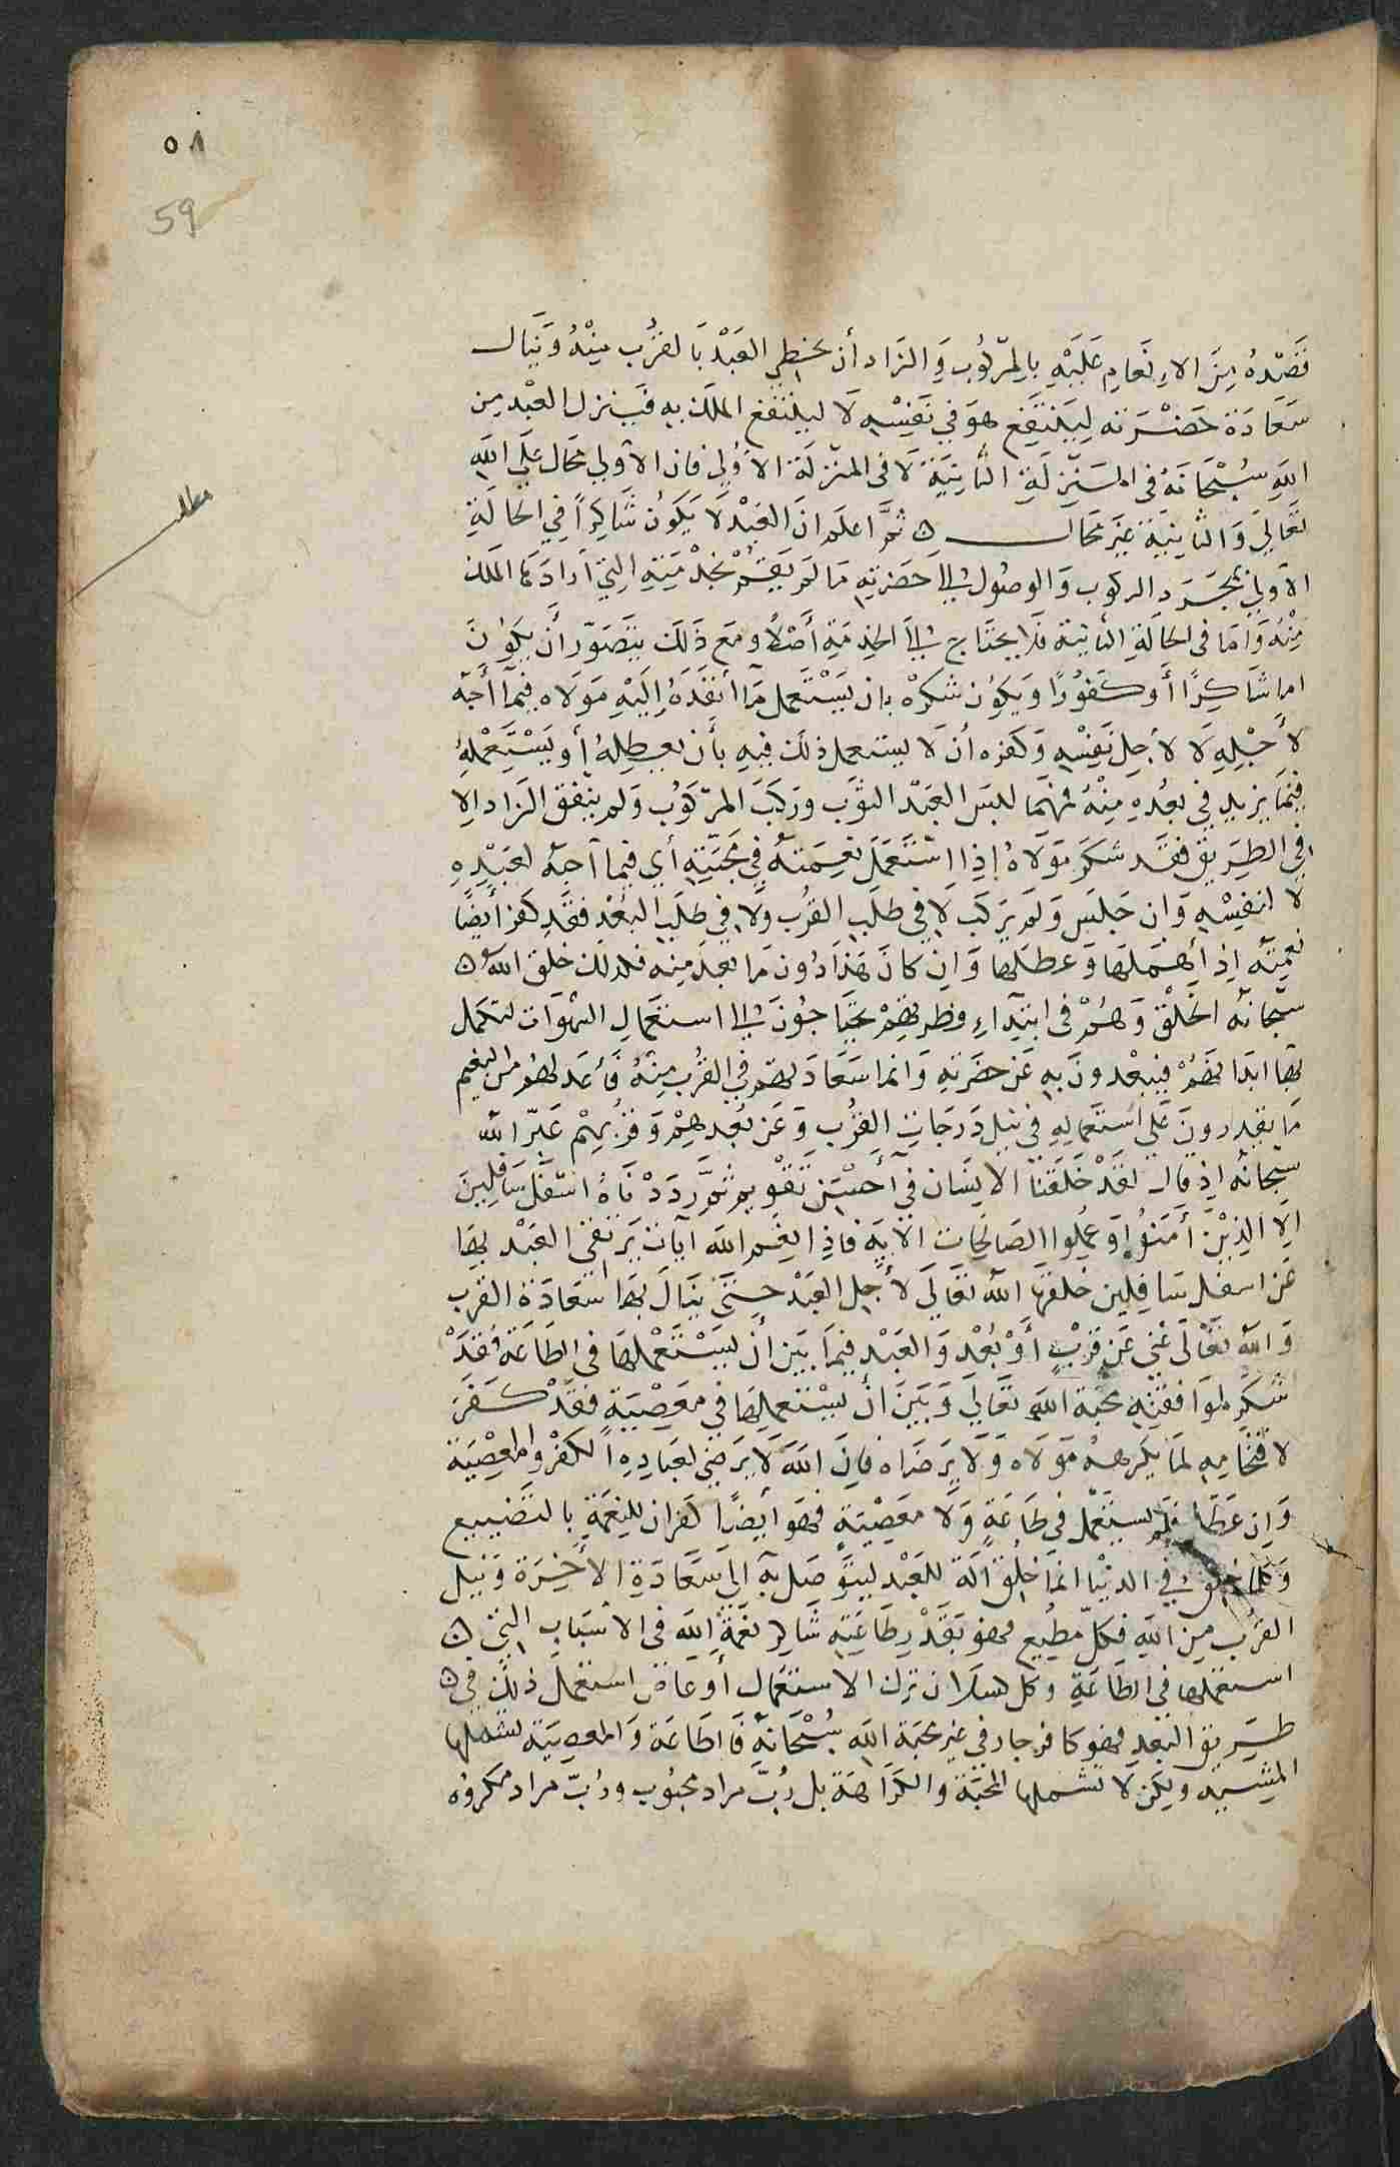 ٥٨
59
قصده من الانعام عليه بالمركوب والزاد أن يحظى العبد بالقرب منه وينال
سعادة حضرته لينتفع هو في نفسه لا لينتفع الملك به فينزل العبد من
الله سبحانه في المنزلة الثانية لا في المنزلة الأولى فان الأولى محال على الله
تعالى والثانية غير محال ثم اعلم ان العبد لا يكون شاكرا في الحالة
مطلب
الأولى بمجرد الركوب والوصول الى حضرته ما لم يقم بخدمته التي أرادها الملك
منه وأما في الحالة الثانية فلا يحتاج الى الخدمة أصلا ومع ذلك يتصور أن يكون
اما شاكرا أو كفورا ويكون شكره بان يستعمل ما أنفده إليه مولاه فيما أحبه
لأجله لا لأجل نفسه وكفره أن لا يستعمل ذلك فيه بأن يعطله أو يستعمله
فيما يزيد في بعده منه فمهما لبس العبد الثوب وركب المركوب ولم ينفق الزاد الا
في الطريق فقد شكر مولاه إذا استعمل نعمته في محبته أي فيما أحبه لعبده
لا لنفسه وان جلس ولم يركب لا في طلب القرب ولا في طلب البعد فقد كفر أيضا
نعمته اذ أهملها وعطلها وان كان هذا دون ما بعد منه فلذلك خلق الله
سبحانه الخلق وهم في ابتداء فطرتهم يحتاجون الى استعمال الشهوات لتكمل
بها ابدانهم فيبعدون به عن حضرته وانما سعادتهم في القرب منه فأعد لهم من النعم
ما يقدرون على استعماله في نيل درجات القرب وعن بعدهم وقربهم عبر الله
سبحانه اذ قال لقد خلقنا الانسان في أحسن تقويم ثم رددناه اسفل سافلين
الا الذين أمنوا وعملوا الصالحات الآية فاذا نعم الله آيات يرتقي العبد بها
عن اسفل سافلين خلقها الله تعالى لأجل العبد حتى ينال بها سعادة القرب
والله تعالى غني عن قرب أو بعد والعبد فيما بين أن يستعملها في الطاعة فقد
شكر لموافقته محبة الله تعالى وبين أن يستعملها في معصية فقد كفر
لاقتحامه لما يكرهه مولاه ولا يرضاه فان الله لا يرضى لعباده الكفر والمعصية
وان عطلها فلم يستعمل في طاعة ولا معصية فهو أيضا كفران للنعمة بالتضييع
وكلما خلق في الدنيا انما خلق الة للعبد ليتوصل به الى سعادة الأخرة ونيل
القرب من الله فكل مطيع فهو بقدر طاعته شاكر نعمة الله في الاسباب التي
استعملها في الطاعة وكل كسلان ترك الاستعمال أو عاص استعمل ذلك في
طريق البعد فهو كافر جار في غير محبة الله سبحانه فالطاعة والمعصية تشملها
المشيئة ولكن لا تشملها المحبة والكراهة بل رب مراد محبوب ورب مراد مكروه